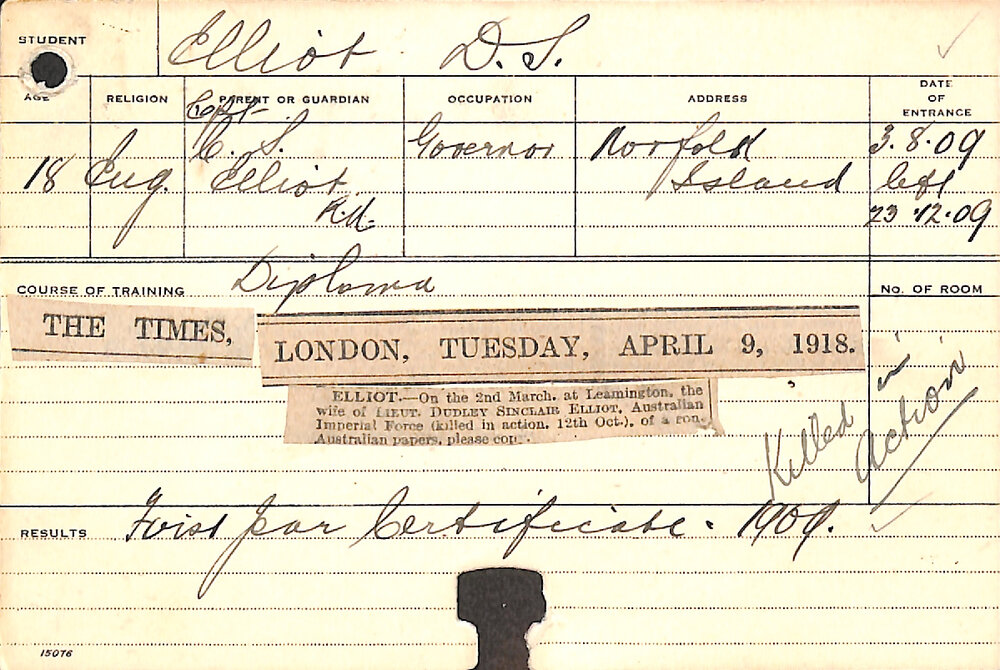 STUDENT
Elliot D.S.
AGE RELIGION PARENT OR GUARDIAN OCCUPATION ADDRESS DATE OF ENTRANCE
Capt.
C. S. Governor Norfolk 3.8.09
18 Eng. Elliot Island left
R.N. 23.12.09
COURSE OF TRAINING Diploma No. OF ROOM
THE TIMES,
LONDON, TUESDAY, APRIL 9, 1918.
ELLIOT.—On the 2nd March, at Leamington, the
wife of LIEUT. DUDLEY SINCLAIR ELLIOT, Australian
Imperial Force (killed in action, 12th Oct.), of a son.
Australian papers, please copy.
Killed in
action
RESULTS First year Certificate. 1909.
15076